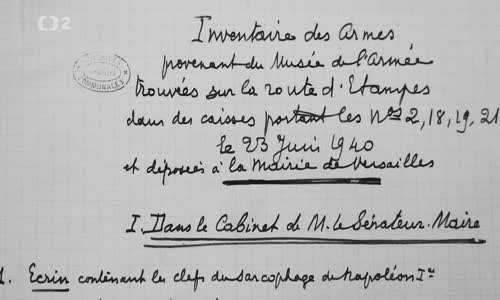 2
Inventaire des Armes
provenant du Musée de l'Armée
trouvées sur la route d'Etampes
dans des caisses portant les Nos 2, 18, 19, 21
le 23 Juin 1940
et déposées à la Mairie de Versailles
COMMUNALES
I. Dans le Cabinet de M. le Sénateur-Maire
1. Ecrin contenant les clefs du sarcophage de Napoléon Ier